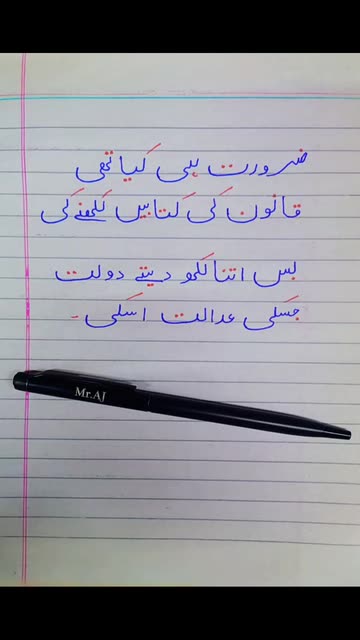 ضرورت ہی کیا تھی
قانون کی کتابیں لکھنے کی
بس اتنا لکھو دیتے دولت
جسکی عدالت اسکی -
Mr.AJ